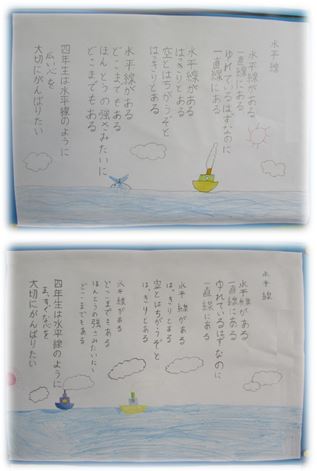 水平線
水平線がある
一直線にある
ゆれているはずなのに
一直線にある
水平線がある
はっきりとある
空とはちがうぞと
はっきりとある
水平線がある
どこまでもある
ほんとうの強さみたいに
どこまでもある
四年生は水平線のように
広い心を
大切にがんばりたい
水平線
水平線がある
一直線にある
ゆれているはずなのに
一直線にある
水平線がある
はっきりとある
空とはちがうぞと
はっきりとある
水平線がある
どこまでもある
ほんとうの強さみたいに
どこまでもある
四年生は水平線のように
まっすぐな心を
大切にがんばりたい